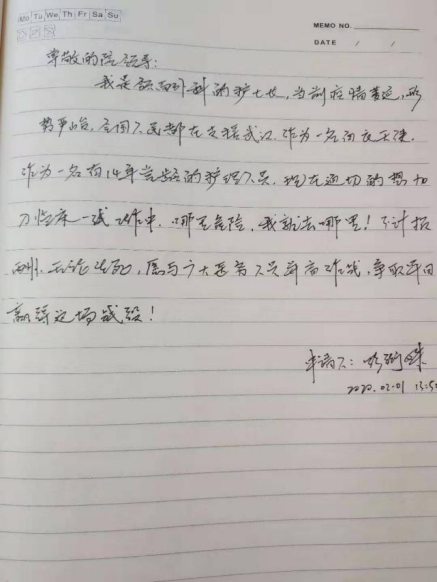 Mo Tu We Th Fr Sa Su
MEMO NO.
DATE / /
尊敬的院领导:
我是颌面外科的护士长,当前疫情蔓延,形
势严峻,全国人民都在支援武汉.作为一名白衣天使.
作为一名有14年党龄的护理人员,现在迫切的想加
入临床一线工作中.哪里危险,我就去哪里!不计报
酬.无论生死,愿与广大医务人员并肩作战,争取早日
赢得这场战役!
申请人:
2020.02.01 13:5